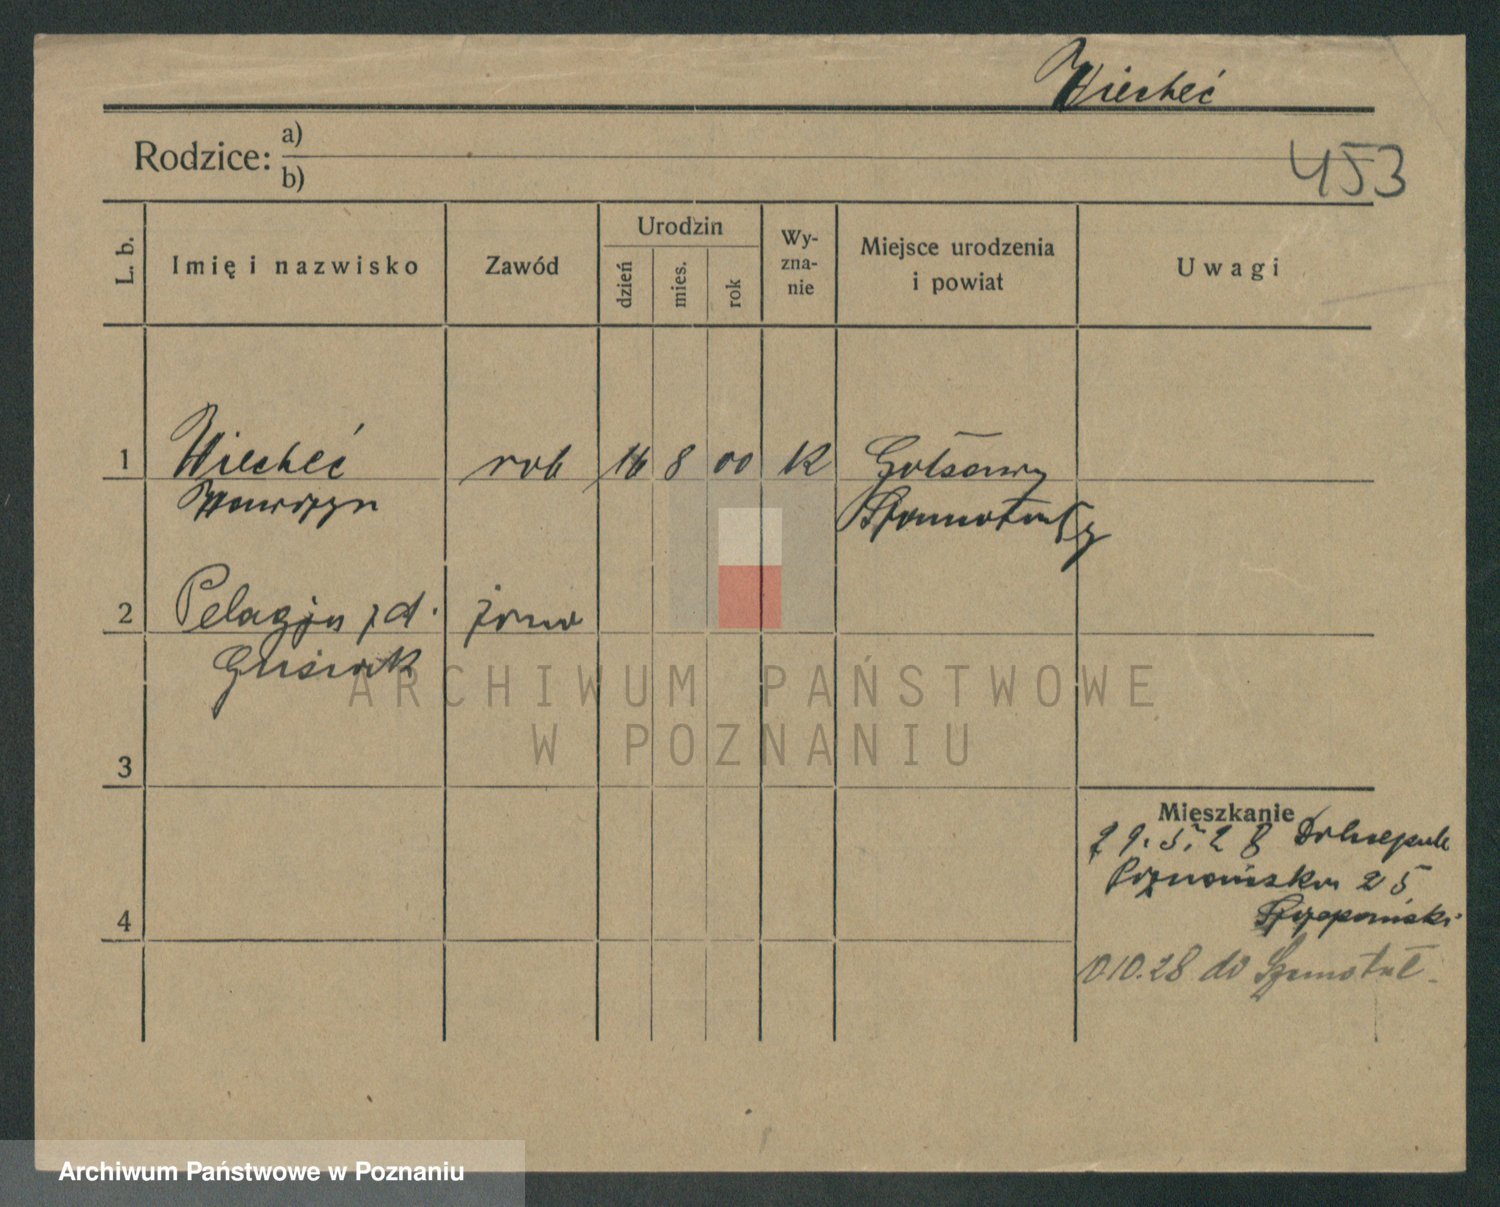 Wiecheć
Rodzice: a)
b)
453
L. b. Imię i nazwisko Zawód Urodzin dzień mies. rok Wy-zna-nie Miejsce urodzenia i powiat Uwagi
1 Wiecheć rob 16 8 00 K
Wawrzyn
2 Pelagja z d. żona
3
ARCHIWUM PAŃSTWOWE
W POZNANIU
Mieszkanie
29.5.28
Poznańska 25
4
10.28 do Szamotuł
Archiwum Państwowe w Poznaniu